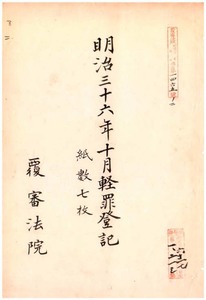 明治三十六年十月軽罪登記
紙數七枚
覆審法院